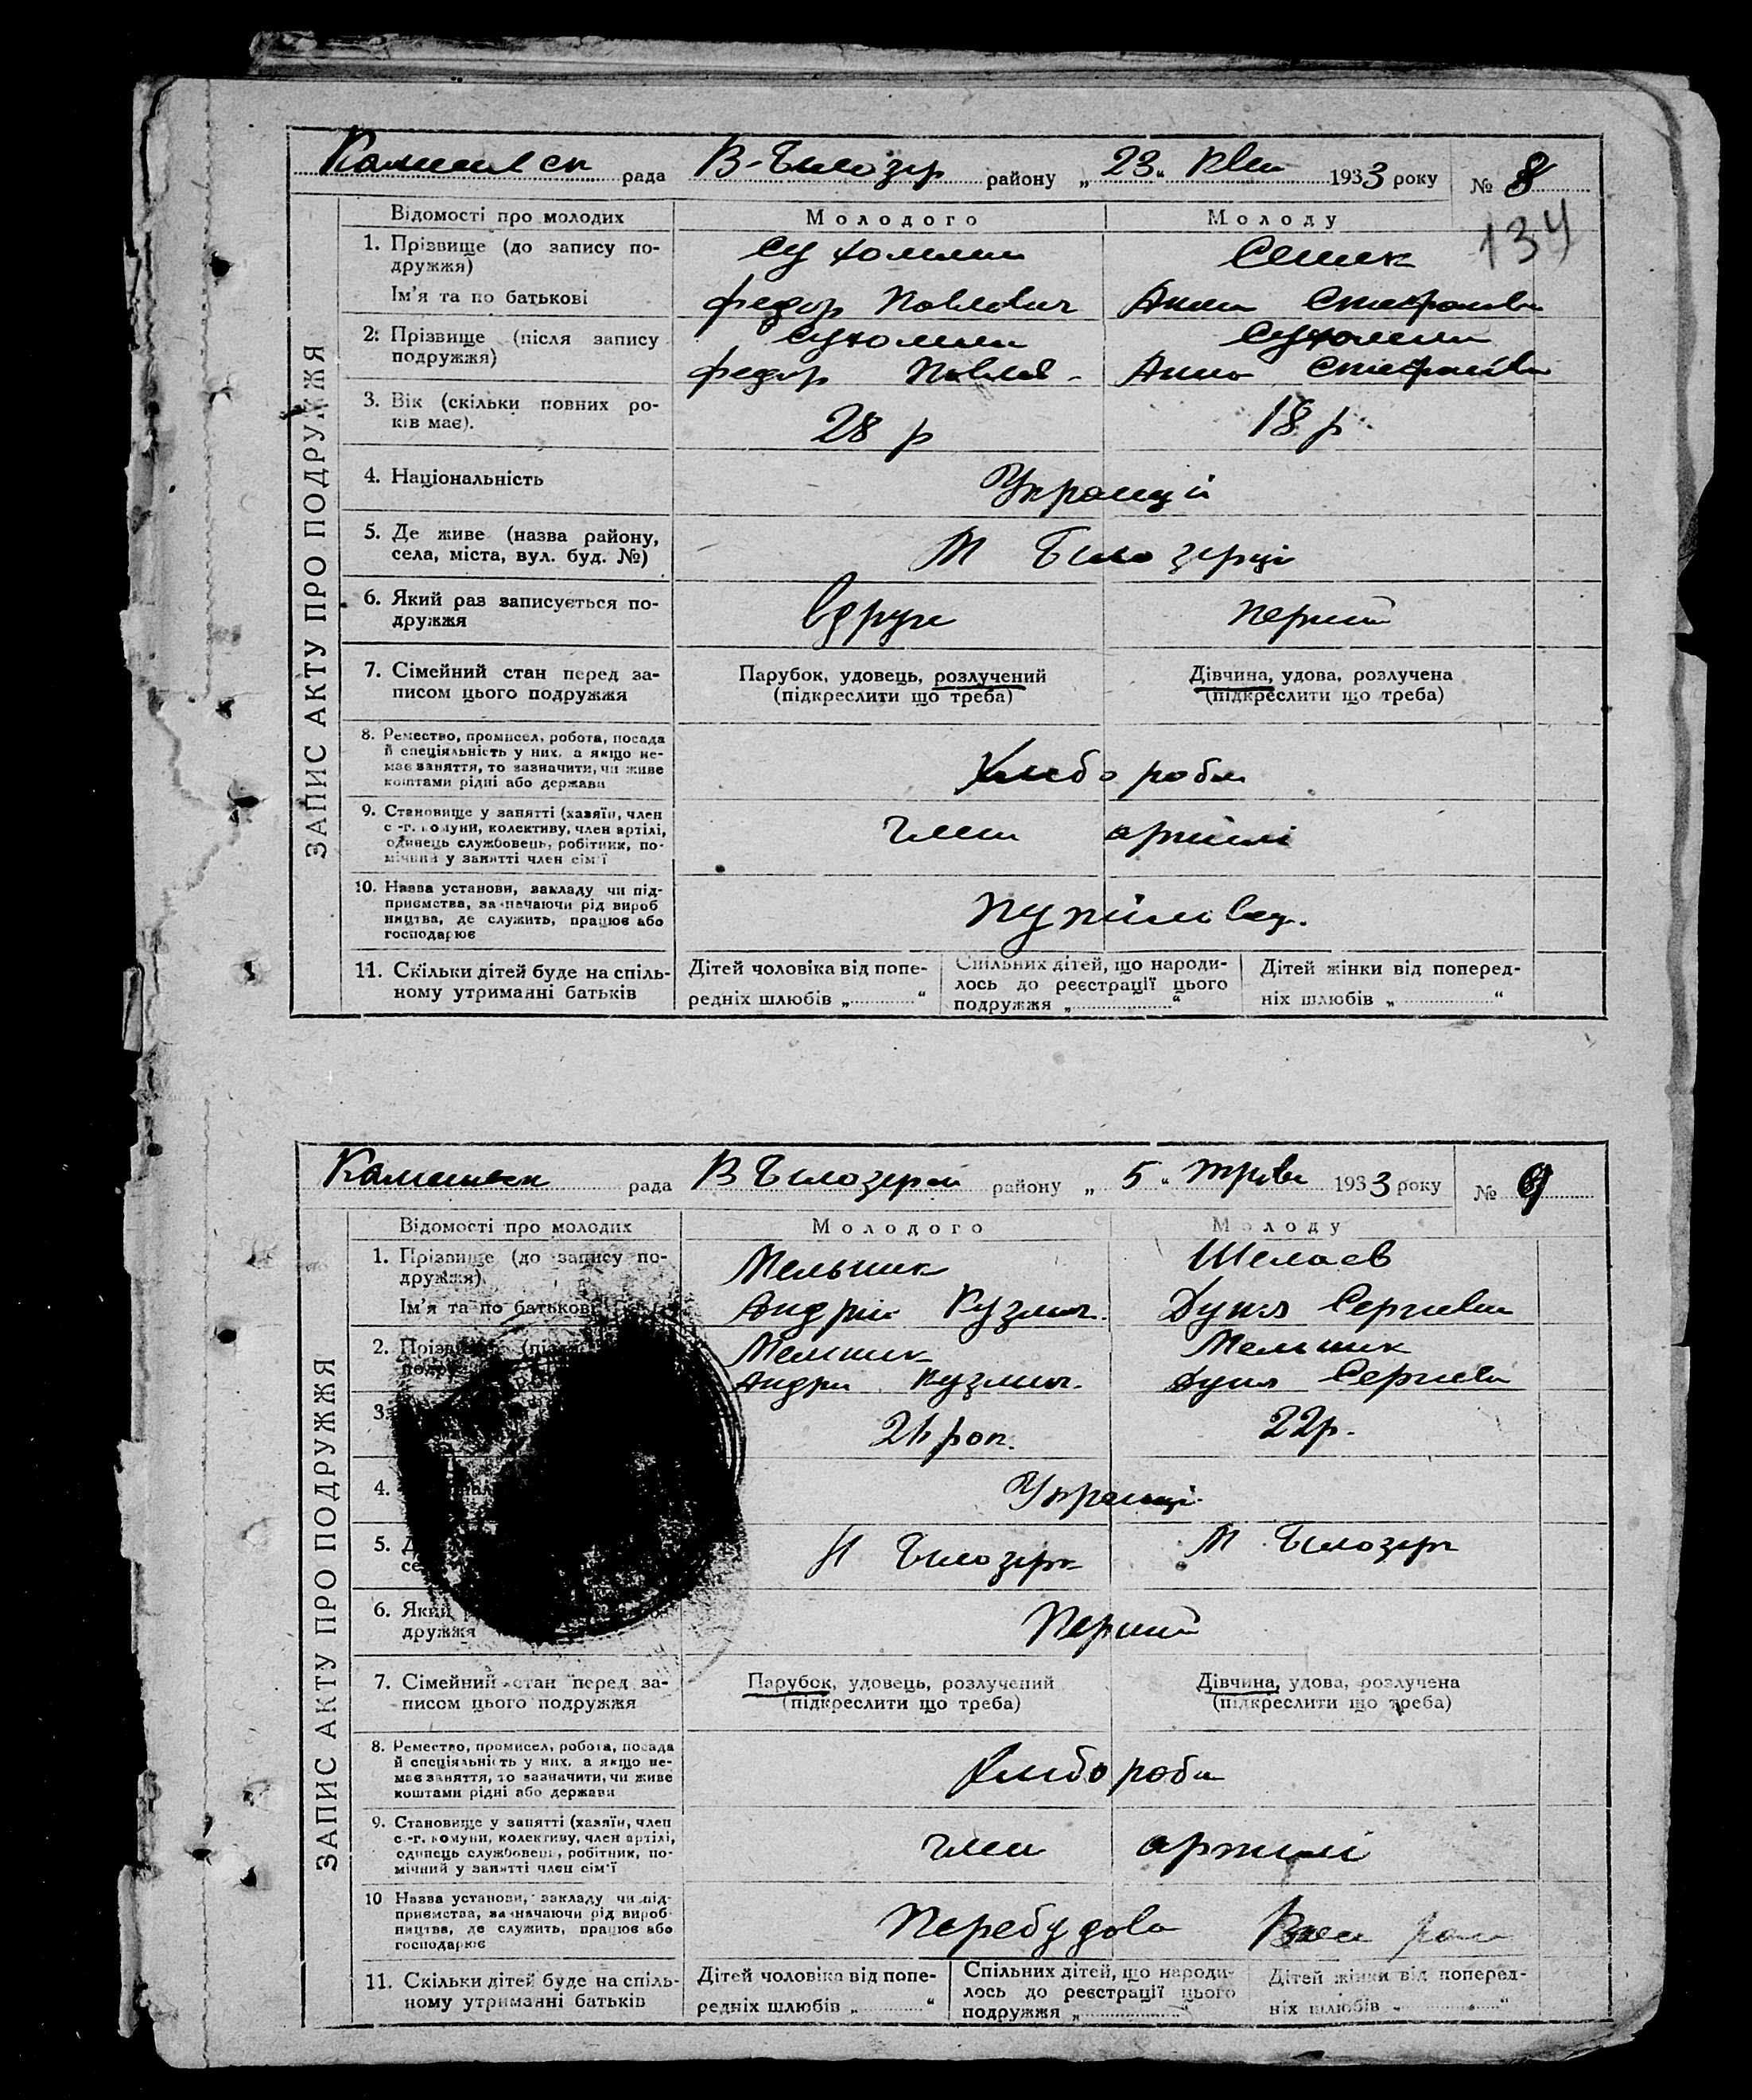 рада В-Билозер району „ 23 “ Квіт 1933 року № 8
134
ЗАПИС АКТУ ПРО ПОДРУЖЖЯ
Відомості про молодих Молодого Молоду
1. Прізвище (до запису по-
дружжя)
Сухомлин
Ім'я та по батькові Федор Павлович Анна
2. Прізвище (після запису
подружжя)
Сухомлин Сухомлин
Федор Павлов- Анна
3. Вік (скільки повних ро-
ків має).
28 р 18 р.
4. Національність Украінці
5. Де живе (назва району,
села, міста, вул. буд. №)
М Білозерці
6. Який раз записується по-
дружжя
Вдруге Перший
7. Сімейний стан перед за-
писом цього подружжя
Парубок, удовець, розлучений
(підкреслити що треба)
Дівчина, удова, розлучена
(підкреслити що треба)
8. Ремество, промисел, робота, посада
й спеціяльність у них, а якщо не-
має заняття, то зазначити, чи живе
коштами рідні або держави
Хлибороби
9. Становище у занятті (хазяїн, член
с-г. комуни, колективу, член артілі,
одинець службовець, робітник, по-
мічний у занятті член сім'ї
член артилі
10. Назва установи, закладу чи під-
приємства, зазначаючи рід вироб
ництва, де служить, працює або
господарює
11. Скільки дітей буде на спіль-
ному утриманні батьків
Дітей чоловіка від попе-
редніх шлюбів „ “
Спільних дітей, що народи-
лось до реєстрації цього
подружжя „ “
Дітей жінки від поперед-
ніх шлюбів „ “
рада В Билозерск району „ 5 “ Трав 1933 року № 9
ЗАПИС АКТУ ПРО ПОДРУЖЖЯ
Відомості про молодих Молодого Молоду
1. Прізвище (до запису по-
дружжя)
Мельник Шелаєв
Ім'я та по батькові Андрій Кузмич. Дуня Сергиевна
2. Прізвище (після
Мельник Мельник
Андри Кузмич. Дуня Сергиев
3. 22р.
4. Украінці
5. Билозерк М Билозерк
6. Який
дружжя
Перший
7. Сімейний стан перед за-
писом цього подружжя
Парубок, удовець, розлучений
(підкреслити що треба)
Дівчина, удова, розлучена
(підкреслити що треба)
8. Ремество, промисел, робота, посада
й спеціяльність у них, а якщо не-
має заняття, то зазначити, чи живе
коштами рідні або держави
Хлибороби
9. Становище у занятті (хазяїн, член
с-г. комуни, колективу, член артілі,
одинець службовець, робітник, по-
мічний у занятті член сім'ї
член артилі
10 Назва установи, закладу чи під-
приємства, зазначаючи рід вироб-
ництва, де служить, працює або
господарює
Перебудова
11. Скільки дітей буде на спіль-
ному утриманні батьків
Дітей чоловіка від попе-
редніх шлюбів „ “
Спільних дітей, що народи-
лось до реєстрації цього
подружжя „ “
Дітей жінки від поперед-
ніх шлюбів „ “